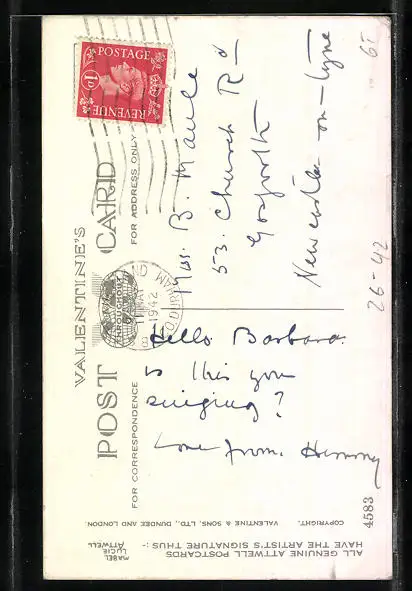 VALENTINE'S
POST CARD
FOR CORRESPONDENCE
FOR ADDRESS ONLY
POSTAGE
1D
REVENUE
MAY
1942
Hello Barbara.
Is this you
singing?
Love from.
Miss. B.
53. Church Rd
Gosforth
Newcastle-on-Tyne
26-42
6T
4583
COPYRIGHT. VALENTINE & SONS, LTD., DUNDEE AND LONDON
ALL GENUINE ATTWELL POSTCARDS
HAVE THE ARTIST'S SIGNATURE THUS :-
MABEL
LUCIE
ATTWELL